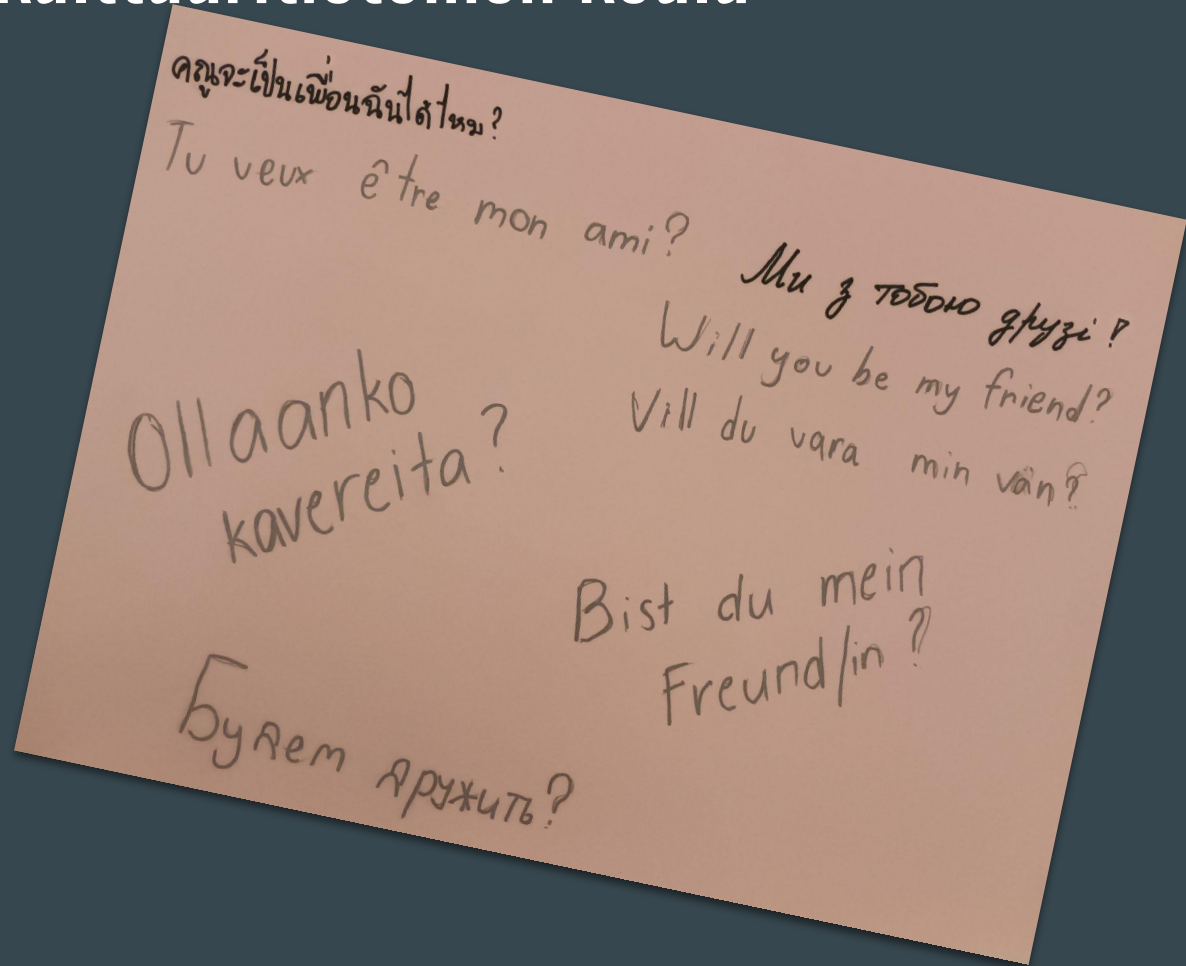 คุณจะเป็นเพื่อนฉันได้ไหม?
Tu veux être mon ami?
Ми з тобою друзі?
Will you be my friend?
Vill du vara min vän?
Ollaanko
kavereita?
Bist du mein
Freund/in?
Будем дружить?